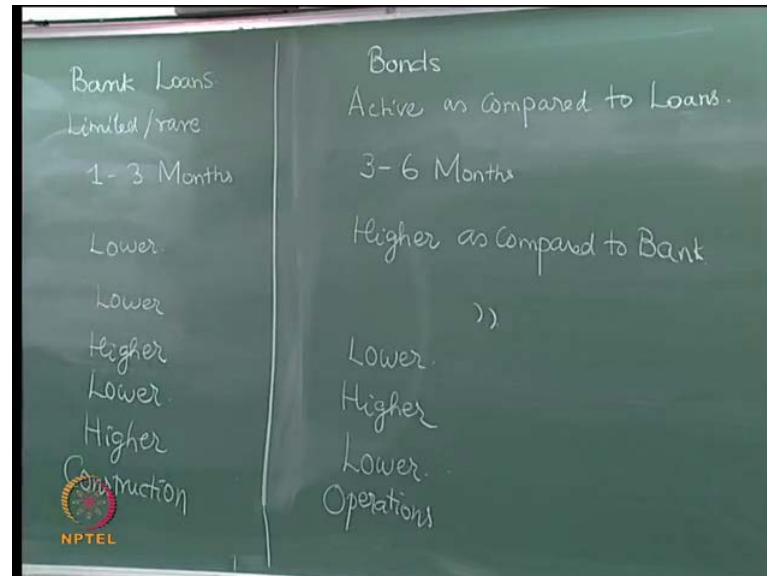 Bank Loans
Limited/rare
1-3 Months
Lower.
Lower
Higher
Lower.
Higher
Construction
Bonds
Active as compared to Loans.
3-6 Months
Higher as Compared to Bank
))
Lower.
Higher
Lower..
Operations
NPTEL